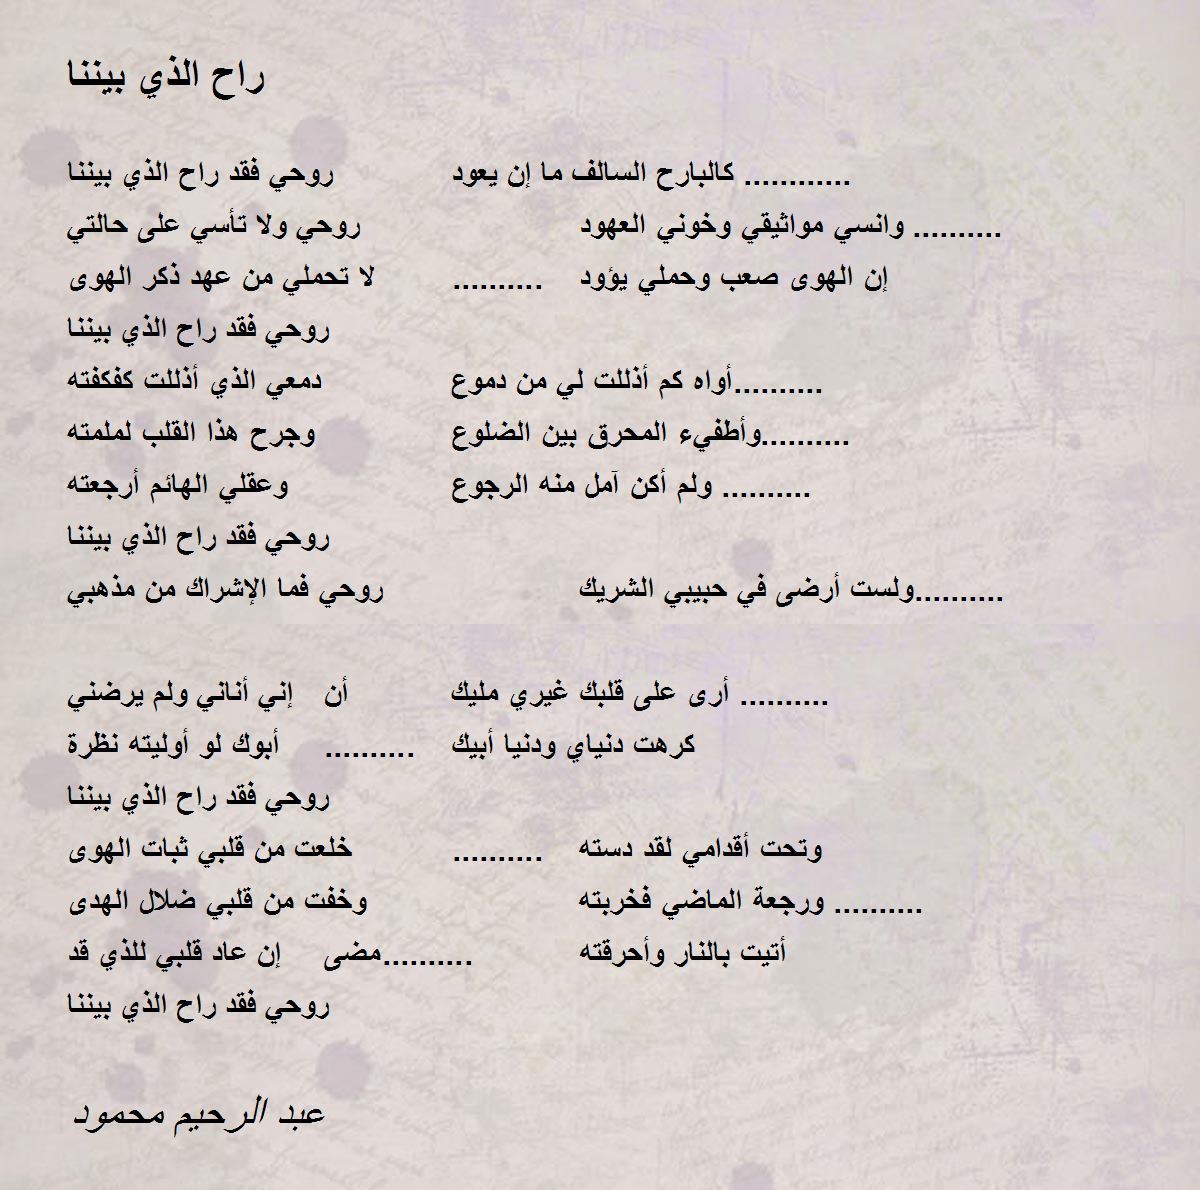 راح الذي بيننا
روحي فقد راح الذي بيننا ............ كالبارح السالف ما إن يعود
روحي ولا تأسي على حالتي .......... وانسي مواثيقي وخوني العهود
لا تحملي من عهد ذكر الهوى .......... إن الهوى صعب وحملي يؤود
روحي فقد راح الذي بيننا
دمعي الذي أذللت كفكفته ..........أواه كم أذللت لي من دموع
وجرح هذا القلب لملمته ..........وأطفيء المحرق بين الضلوع
وعقلي الهائم أرجعته .......... ولم أكن آمل منه الرجوع
روحي فقد راح الذي بيننا
روحي فما الإشراك من مذهبي ..........ولست أرضى في حبيبي الشريك
إني أناني ولم يرضني أن .......... أرى على قلبك غيري مليك
أبوك لو أوليته نظرة .......... كرهت دنياي ودنيا أبيك
روحي فقد راح الذي بيننا
خلعت من قلبي ثبات الهوى .......... وتحت أقدامي لقد دسته
وخفت من قلبي ضلال الهدى .......... ورجعة الماضي فخربته
إن عاد قلبي للذي قد مضى.......... أتيت بالنار وأحرقته
روحي فقد راح الذي بيننا
عبد الرحيم محمود